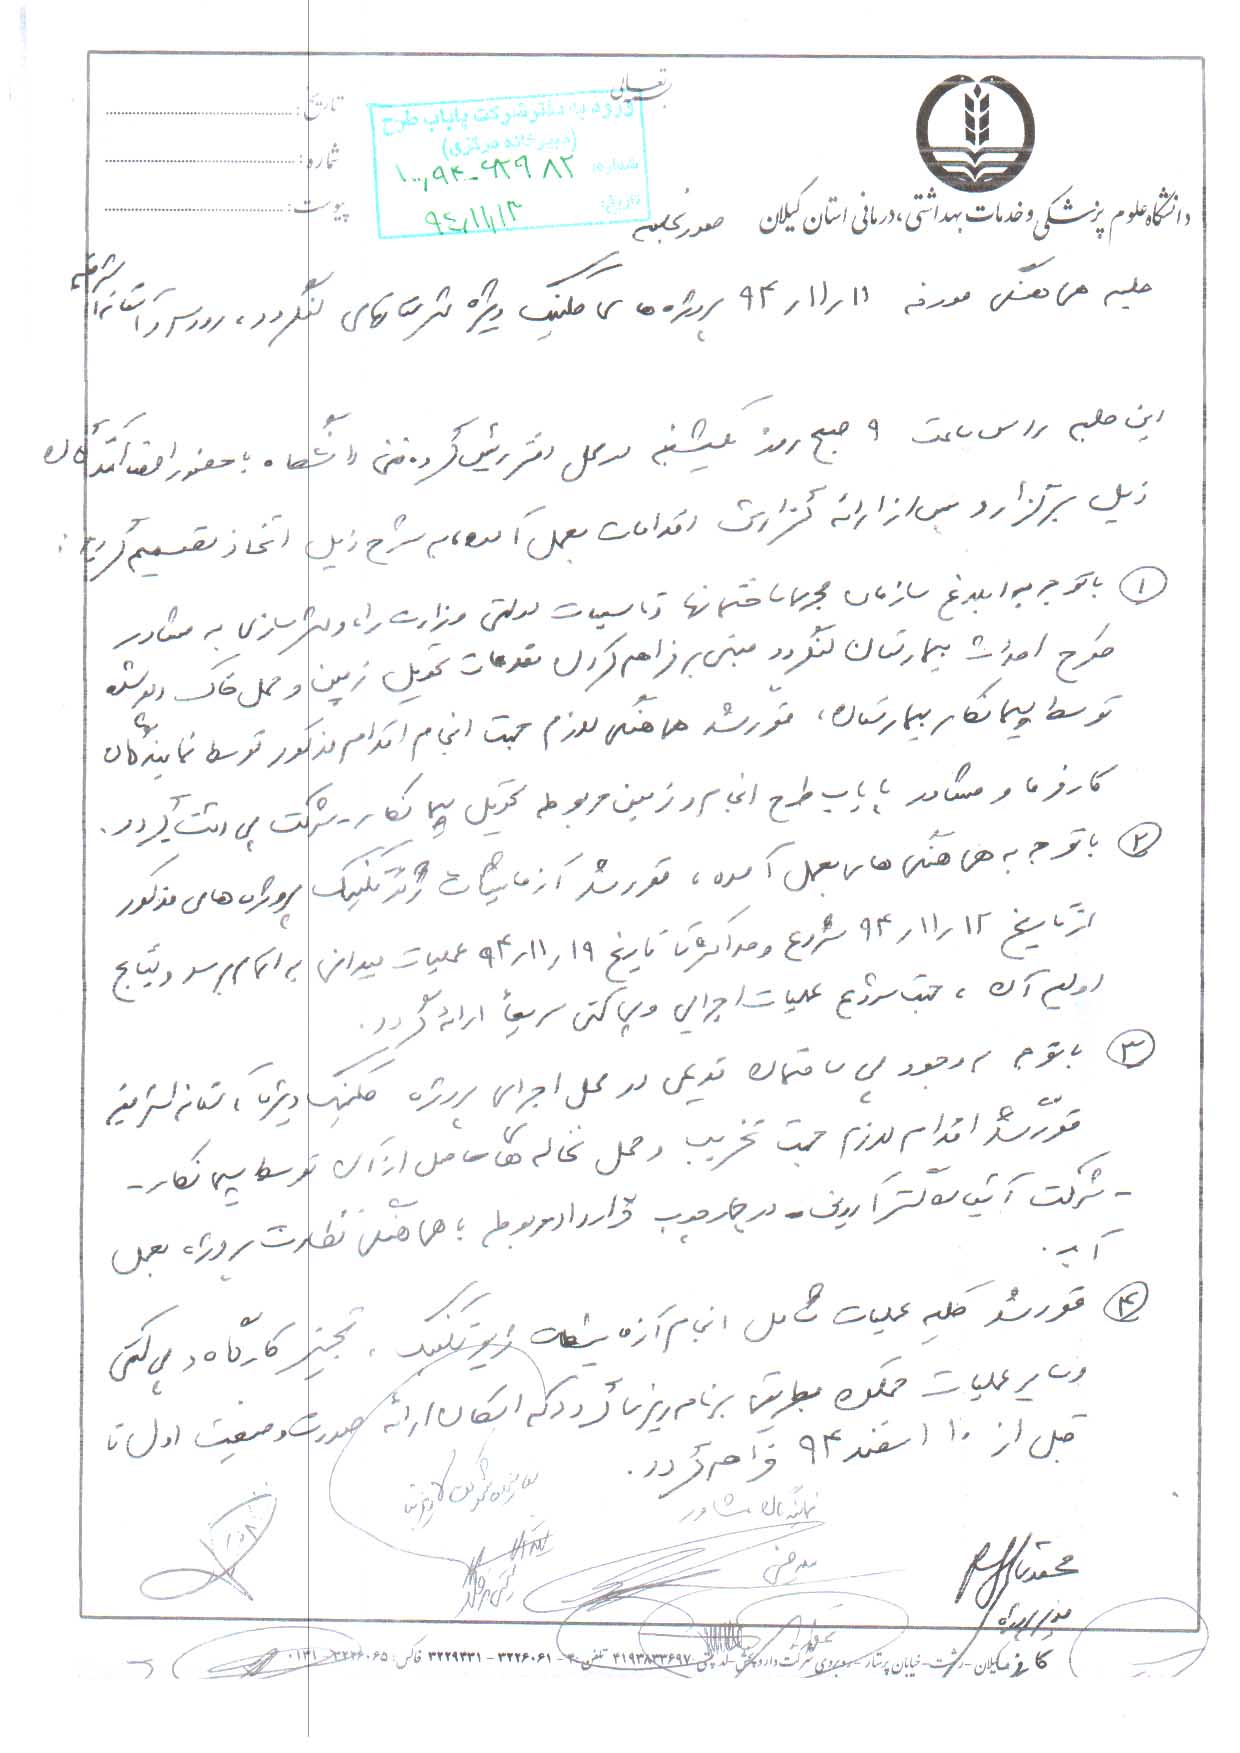 بسمه تعالی
تاریخ:
شماره:
پیوست:
ورود به دفتر شرکت پایاب طرح
(دبیرخانه مرکزی)
شماره:
تاریخ: ۹۴/۱۱/۱۳
دانشگاه علوم پزشکی و خدمات بهداشتی، درمانی استان گیلان
صورتجلسه
جلسه هماهنگی مورخه ۹۴/۱۱/۱۱ پروژه های کلینیک ویژه شهرستانهای لنگرود، رودسر و آستانه اشرفیه
این جلسه راس ساعت ۹ صبح روز یکشنبه در محل دفتر رئیس گروه فنی دانشگاه با حضور امضا کنندگان
ذیل برگزار و پس از ارائه گزارش اقدامات بعمل آمده، به شرح ذیل اتخاذ تصمیم گردید:
۱ با توجه به ابلاغ سازمان مجری ساختمانها و تاسیسات دولتی وزارت راه و شهرسازی به مشاور
طرح احداث بیمارستان لنگرود مبنی بر فراهم کردن مقدمات تحویل زمین و حمل خاک دپو شده
توسط پیمانکار بیمارستان، مقرر شد هماهنگی لازم جهت انجام اقدام مذکور توسط نمایندگان
کارفرما و مشاور پایاب طرح انجام و زمین مربوطه تحویل پیمانکار - شرکت گردد.
۲ با توجه به هماهنگی های بعمل آمده، مقرر شد آزمایشات ژئوتکنیک پروژه های مذکور
از تاریخ ۹۴/۱۱/۱۲ شروع و حداکثر تا تاریخ ۹۴/۱۱/۱۹ عملیات میدانی به اتمام برسد و نتایج
اولیه آن، جهت شروع عملیات اجرایی و پی کنی سریعاً ارائه گردد.
۳ با توجه به وجود پی ساختمان قدیمی در محل اجرای پروژه کلینیک ویژه آستانه اشرفیه
مقرر شد اقدام لازم جهت تخریب و حمل نخاله های حاصل از آن توسط پیمانکار -
- شرکت - در چارچوب قرارداد مربوطه با هماهنگی نظارت پروژه، بعمل
آید.
۴ مقرر شد کلیه عملیات شامل انجام آزمایشات ژئوتکنیک، تجهیز کارگاه و پی کنی
و سایر عملیات ممکن بطریقی برنامه ریزی گردد که امکان ارائه صورت وضعیت اول تا
قبل از ۱۰ اسفند ۹۴ فراهم گردد.
نمایندگان مشاور
مدیر پروژه
کارفرما
گیلان - رشت - خیابان پرستار - روبروی شرکت دارو پخش - کد پستی ۴۱۹۳۸۳۳۶۹۷ تلفن: ۳۲۲۶۰۶۱ - ۳۲۲۹۳۳۱ فاکس: ۳۲۲۶۰۶۵ - ۰۱۳۱